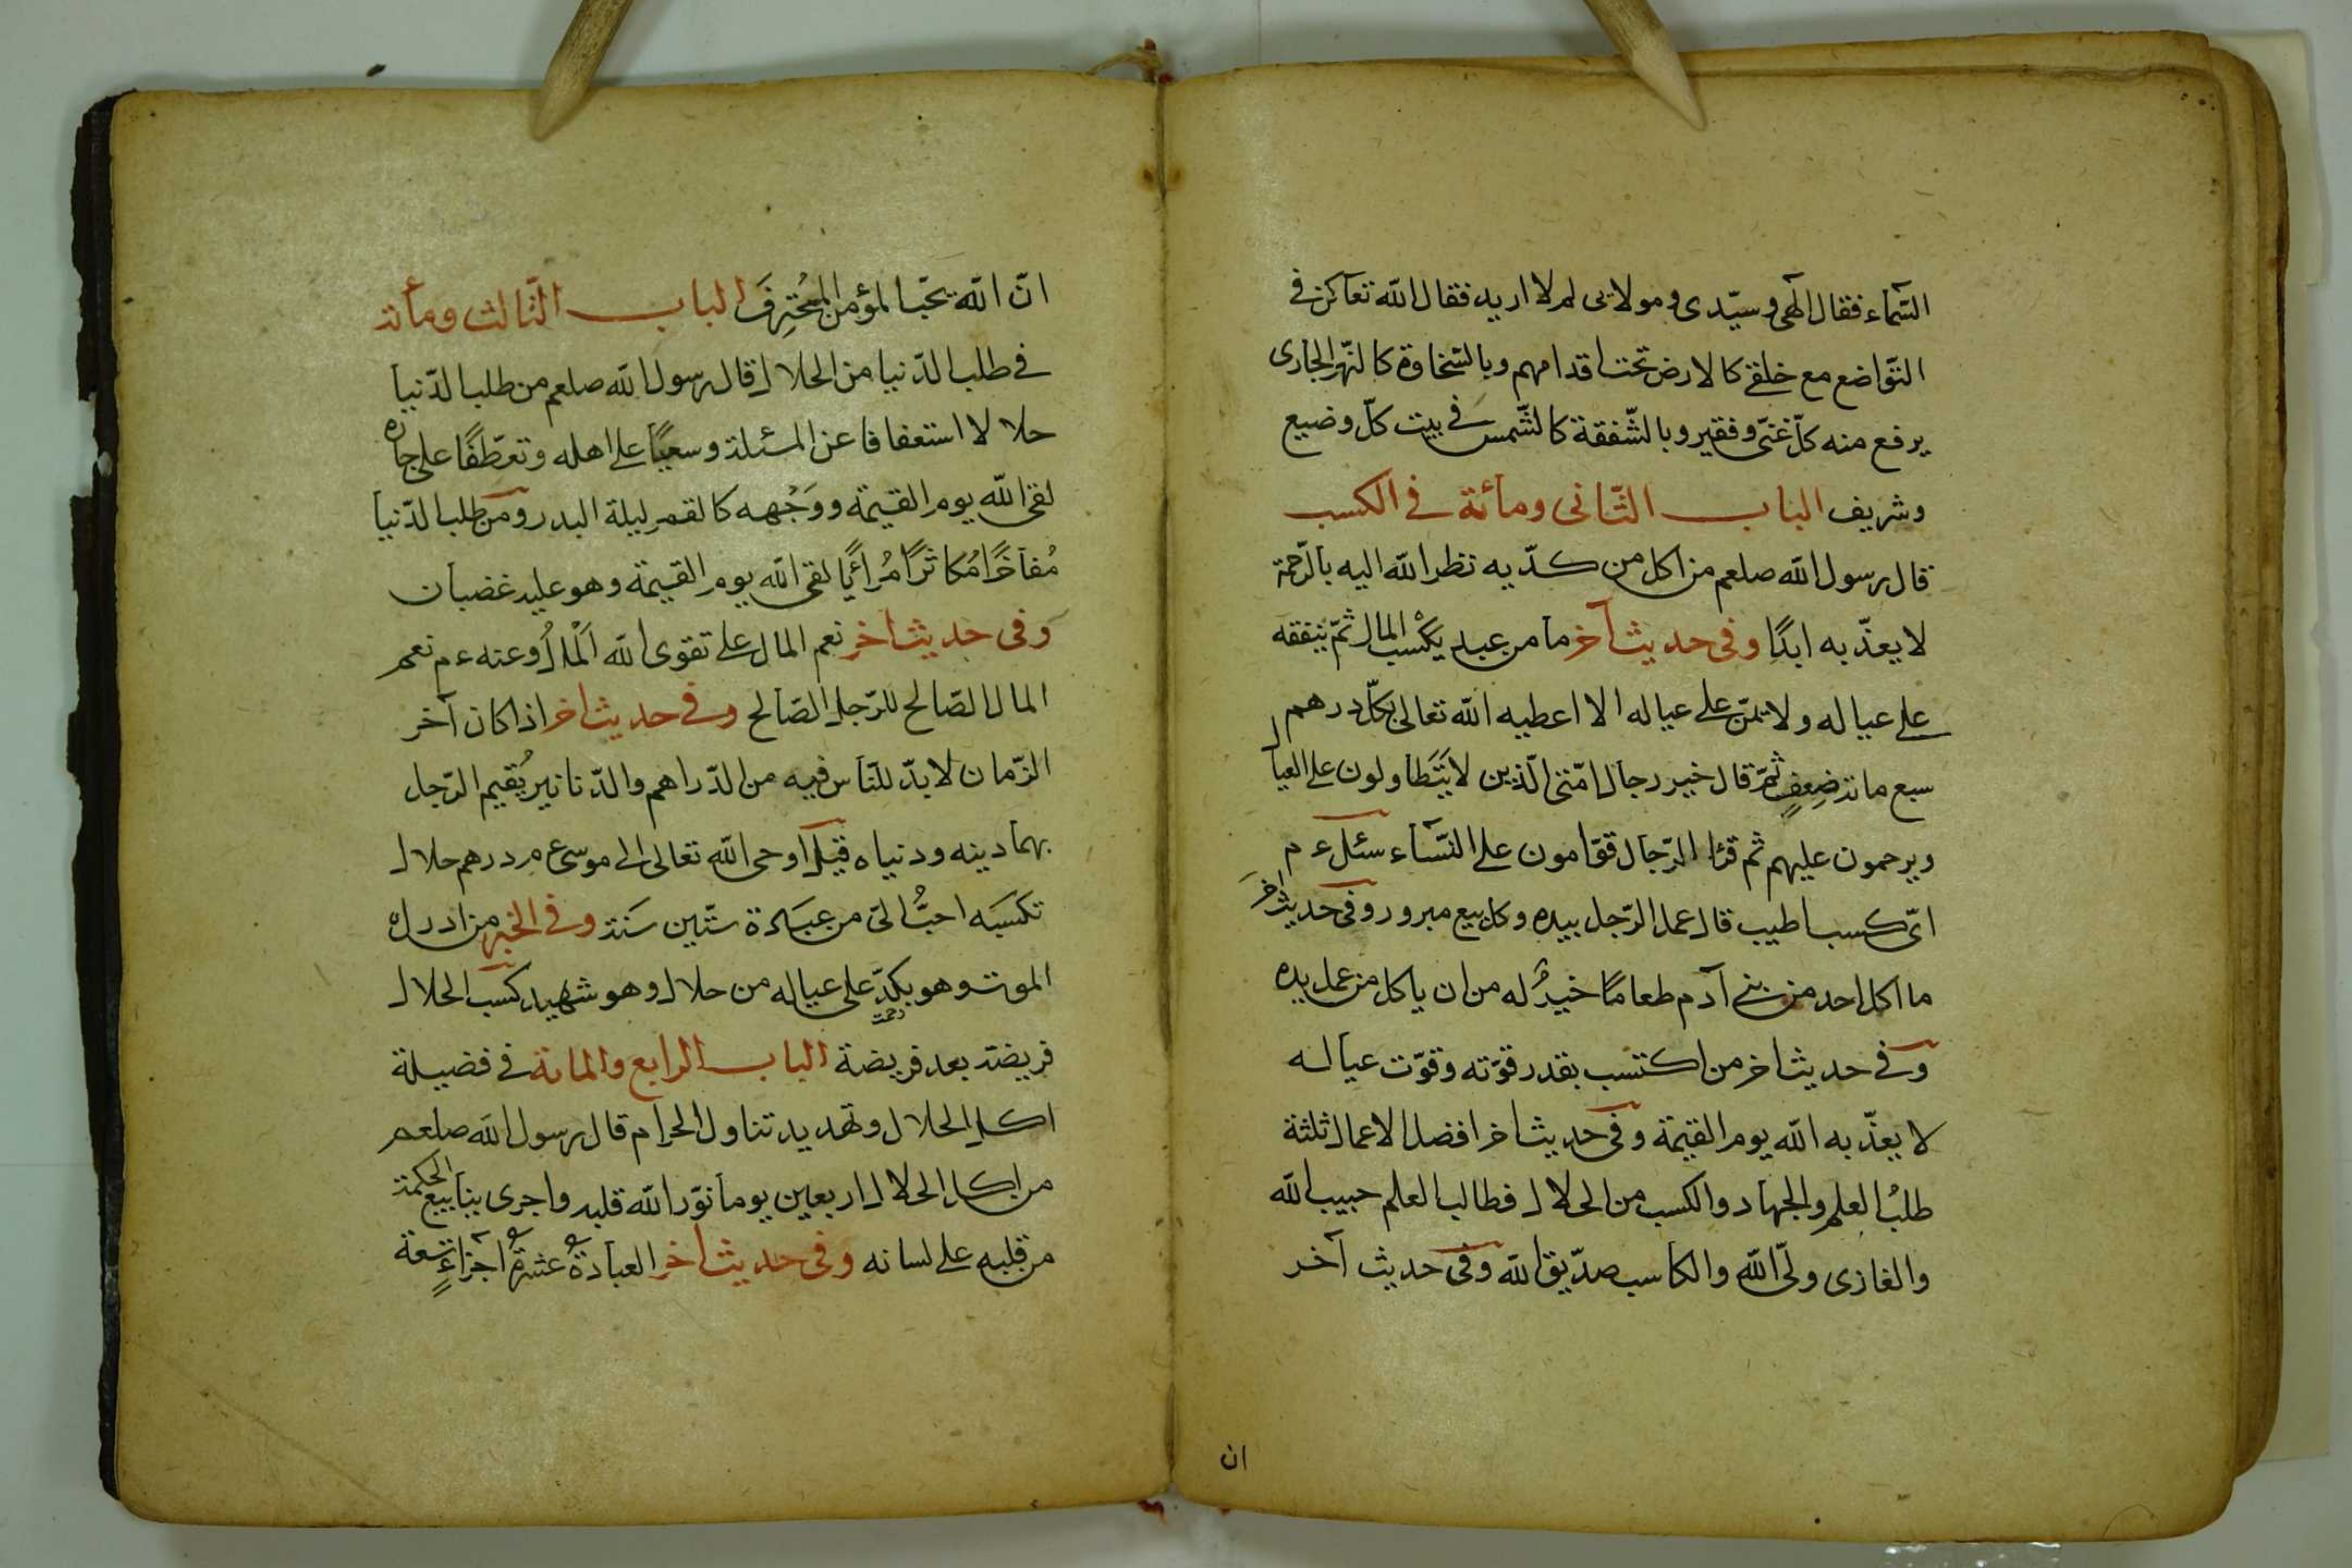 السّمآء فقال الهى وسيّدى ومولائى لم لا اريد فقال الله تعا كن فى
التّواضع مع خلقى كالارض تحت اقدامهم وبالسّخاوة كالنّهر الجارى
يرفع منه كلّ غنّى وفقير وبالشّفقة كالشّمس فى بيت كلّ وضيع
وشريف الباب الثّانى ومأئة فى الكسب
قال رسول الله صلعم من اكل من كدّ يه نظر الله اليه بالرّحمة
لا يعذّبه ابدًا وفى حديث آخر ما من عبد يكْسب المال ثمّ ينفقه
على عياله ولا يمّن على عياله الا اعطيه الله تعالى بكلّ درهم
سبع مائة ضِعفٍ ثمّ قال خير رجال امّتى الّذين لا يَتَطاولون على العيال
ويرحمون عليهم ثم قرٔا الرّجال قوّامون على النّسآء سئل ء م
اىّ كسب اطيب قال عمل الرّجل بيده وكل بيع مبرور وفى حديث اخر
ما اكل احد من بنى آدم طعامًا خيرٌ له من ان ياكل من عمل يده
وفى حديث اخر من اكتسب بقدر قوّته وقوّت عياله
لا يعذّبه الله يوم القيمة وفى حديث اخر افضل الاعمال ثلثة
طلبُ العلم والجهاد والكسب من الحلال فطالب العلم حبيب الله
والغازى ولّى الله والكاسب صدّيق الله وفى حديث آخر
ان
انّ الله يحّب المؤمن المُحْترِفَ الباب الثّالث ومأئة
فى طلب الدّنيا من الحلال قال رسول الله صلعم من طلب الدّنيا
حلالا استعفافا عن المسئلة وسعيًا على اهله وتعطّفًا على جاره
لقى الله يوم القيمة ووَجْهه كالقمر ليلة البدر ومن طلب الدّنيا
مُفاخرًا مُكاثرًا مُرائيًا لقى الله يوم القيمة وهو عليه غضبان
وفى حديث اخر نعم المال على تقوى الله اَلْمالُ وعنه ء م نعم
المال الصّالح للرّجل الصّالح وفى حديث اخر اذا كان آخر
الزّمان لا بدّ للنّاس فيه من الدّراهم والدّنانير يُقيم الرّجل
بهما دينه ودنياه قيل اوحى الله تعالى الى موسى ء م درهم حلال
تكسبَه احبُّ الىّ من عبادة ستّين سَنة وفى الخبر من ادرك
الموت وهو يكدّ على عياله من حلال وهو شهيد كسب الحلال
فريضة بعد فريضة الباب الرابع والمائة فى فضيلة
اكل الحلال وتهديد تناول الحرام قال رسول الله صلعم
من اكل الحلال اربعين يوما نوّر الله قلبه واجرى ينابيع الحكمة
من قلبه على لسانه وفى حديث اخر العبادةُ عشرةُ اجزاءٍ تسعة